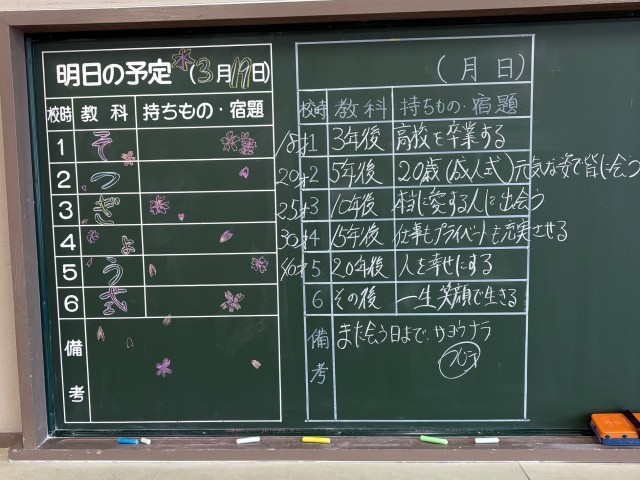 明日の予定 水 (3月19日)
校時 教科 持ちもの・宿題
1 そ
2 つ
3 ぎ
4 ょ
5 う
6 式
備考
(月日)
校時 教科 持ちもの・宿題
18才 1 3年後 高校を卒業する
20才 2 5年後 20歳(成人式)元気な姿で皆に会う
25才 3 10年後 本当に愛する人に出会う
30才 4 15年後 仕事もプライベートも充実させる
40才 5 20年後 人を幸せにする
6 その後 一生笑顔で生きる
備考 また会う日まで、サヨウナラ